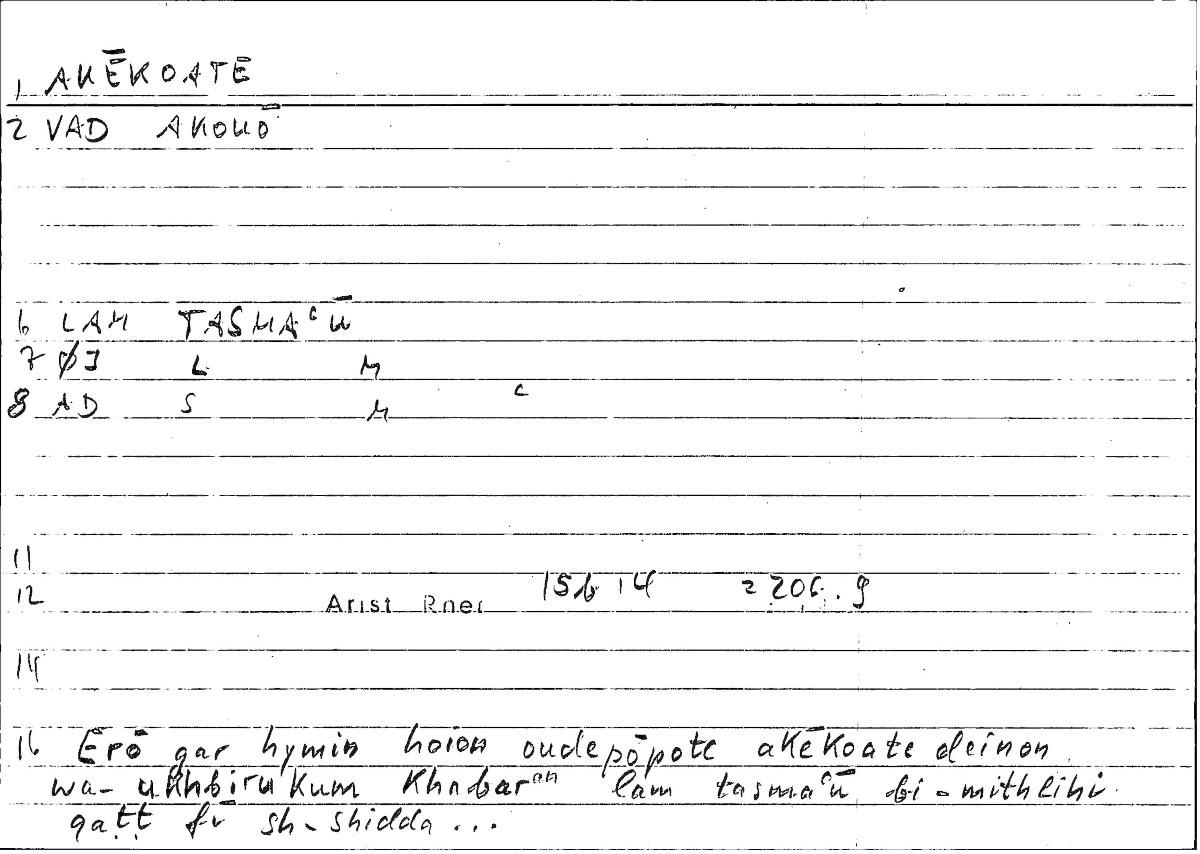 1 AKĒKOATĒ
2 VAD AKOUŌ
6 LAM TASMAᶜŪ
7 ØJ L M
8 AD S M ᶜ
11
12 Arist Rhet 15b 14 = 206.9
14
16 Erō gar hymin hoion oudepōpote akēkoate deinon
wa-ukhbirukum khabarᵃⁿ lam tasmaᶜū bi-mithlihi
qaṭṭ fī sh-shidda ...